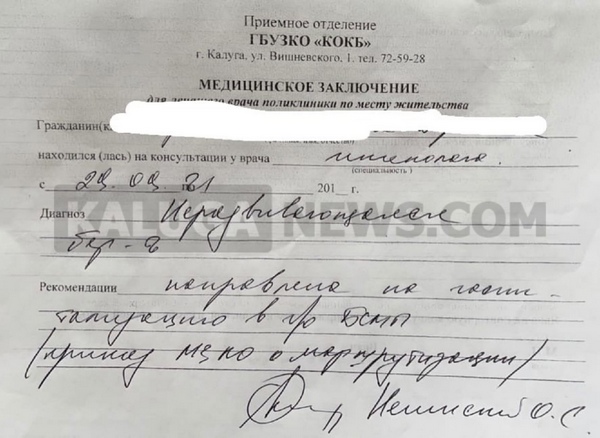 Приемное отделение
ГБУЗКО «КОКБ»
г. Калуга, ул. Вишневского, 1. тел. 72-59-28
МЕДИЦИНСКОЕ ЗАКЛЮЧЕНИЕ
для лечащего врача поликлиники по месту жительства
Гражданин(к
находился (лась) на консультации у врача гинеколога
(специальность)
с 29.09.21 201_ г.
Диагноз Неразвивающаяся
бер-ь
KALUGA NEWS.COM
Рекомендации направлена на госпи-
тализацию в г/о БСМП
(приказ МЗКО о маршрутизации)
О.С.